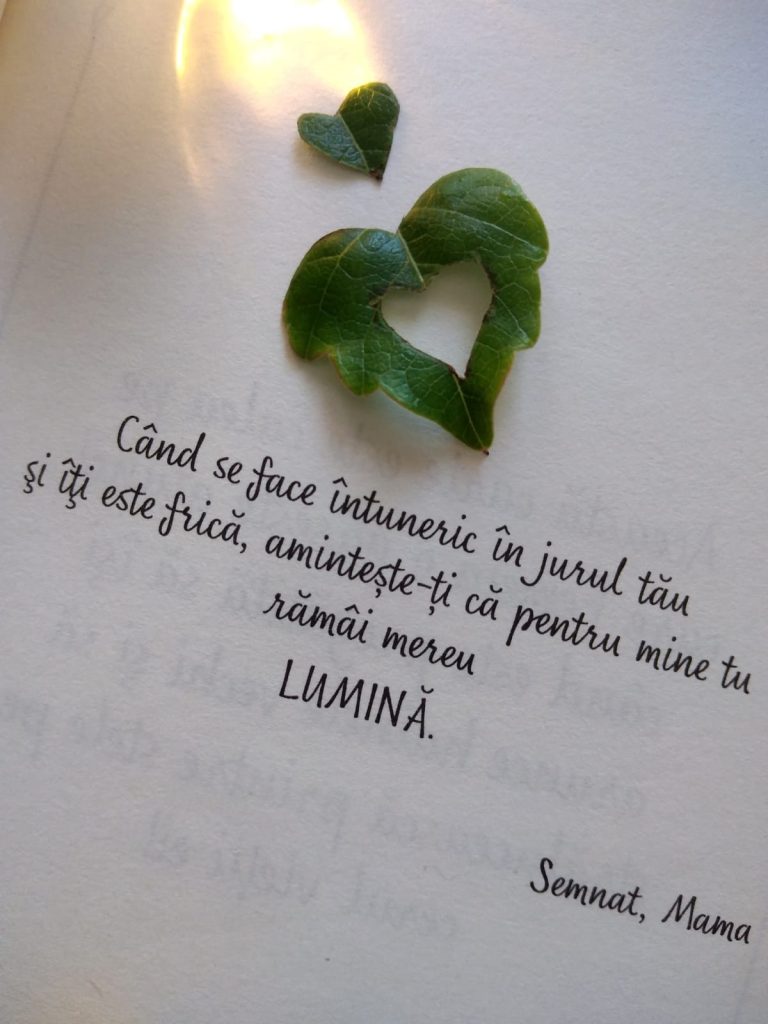 Când se face întuneric în jurul tău
şi îţi este frică, amintește-ți că pentru mine tu
rămâi mereu
LUMINĂ.
Semnat, Mama